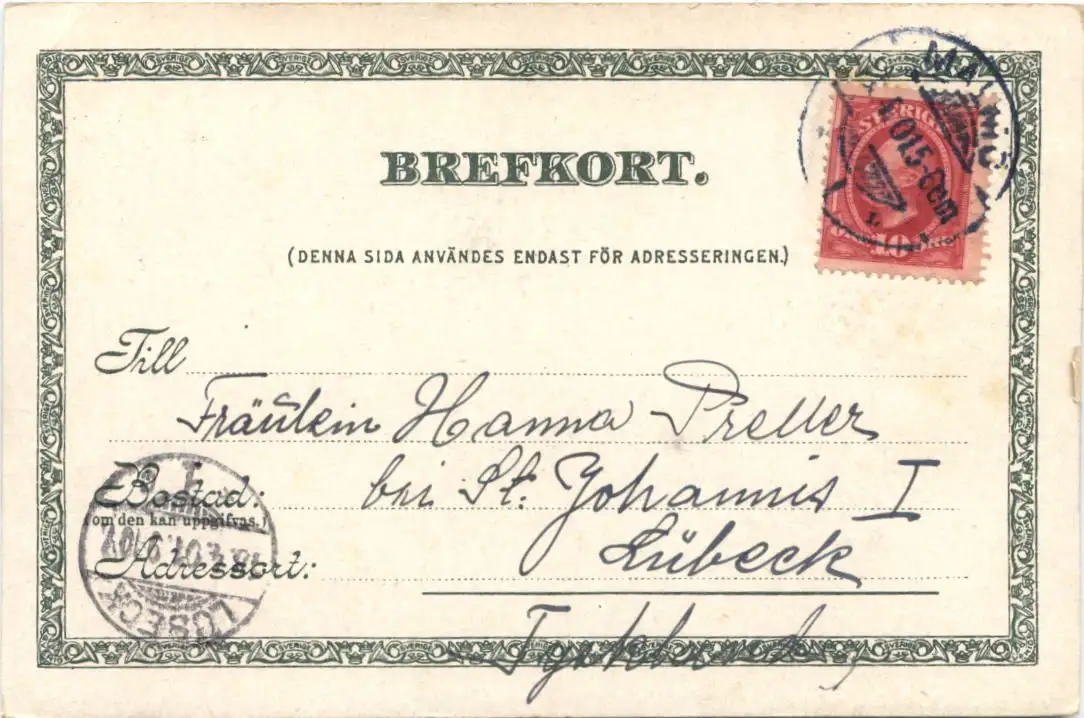 BREFKORT.
MALMÖ
SVERIGE
10
(DENNA SIDA ANVÄNDES ENDAST FÖR ADRESSERINGEN.)
Till
Fräulein Hanna Preller
Bostad: bei St. Johannis I
(om den kan uppgifvas.)
Lübeck
Adressort:
Tyskland
LÜBECK